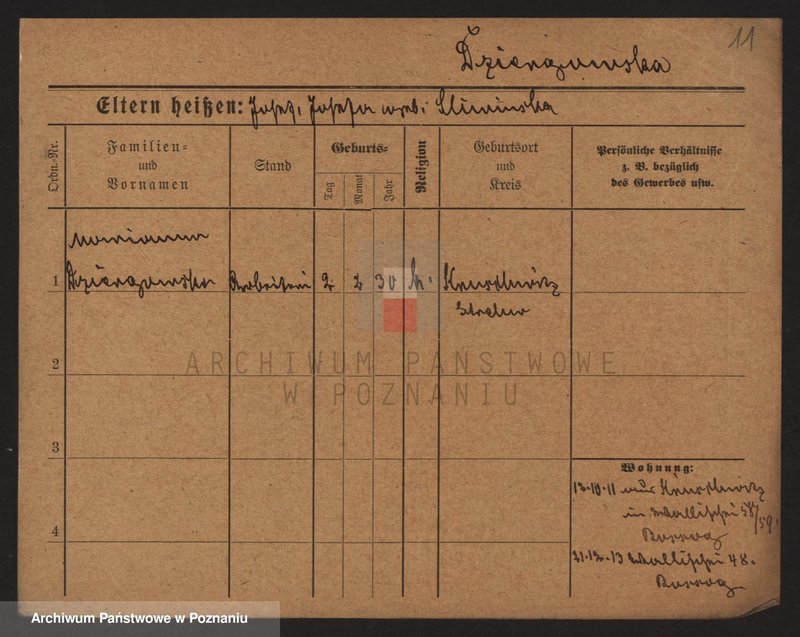 11
Dzierzawska
Eltern heißen: Josef, Josefa geb. Sliwinska
Ordn.-Nr.
Familien-
und
Vornamen
Stand
Geburts-
Tag
Monat
Jahr
Religion
Geburtsort
und
Kreis
Persönliche Verhältnisse
z. B. bezüglich
des Gewerbes usw.
Marianna
1 Dzierzawska Arbeiterin 2 2 30 k. Kruschwitz
Strelno
2
ARCHIWUM PAŃSTWOWE
W POZNANIU
3
Wohnung:
13.10.11 aus Kruschwitz
in Wallischei 58/59.
4
21.12.13 Wallischei 48.
Archiwum Państwowe w Poznaniu